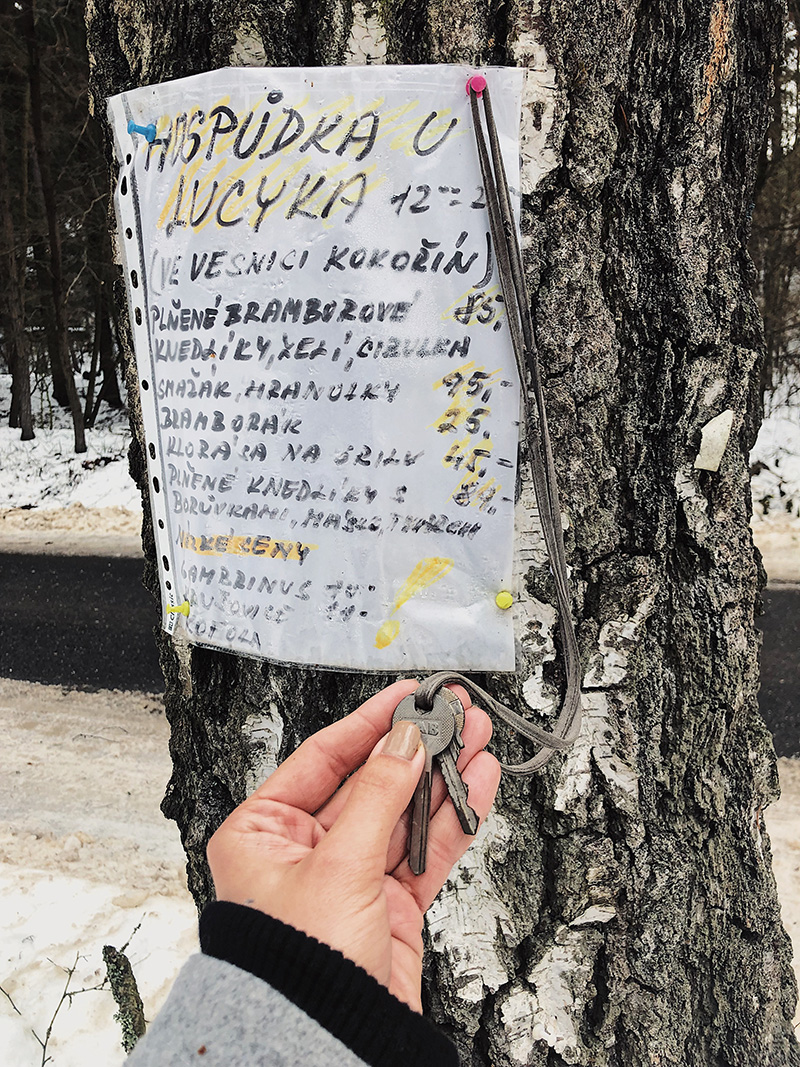 HOSPŮDKA U
LUCYKA 12⁰⁰-2
(VE VESNICI KOKOŘÍN)
PLŇENÉ BRAMBOROVÉ 85,-
KNEDLÍKY, ZELÍ, CIBULKA
SMAŽÁK, HRANOLKY 95,-
BRAMBORÁK 25,-
KLOBÁSA NA GRILU 45,-
PLŇENÉ KNEDLÍKY S 89,-
BORŮVKAMI, MÁSLO, TVAROH
NÍZKÉ CENY !
GAMBRINUS
KRUŠOVICE
KOFOLA